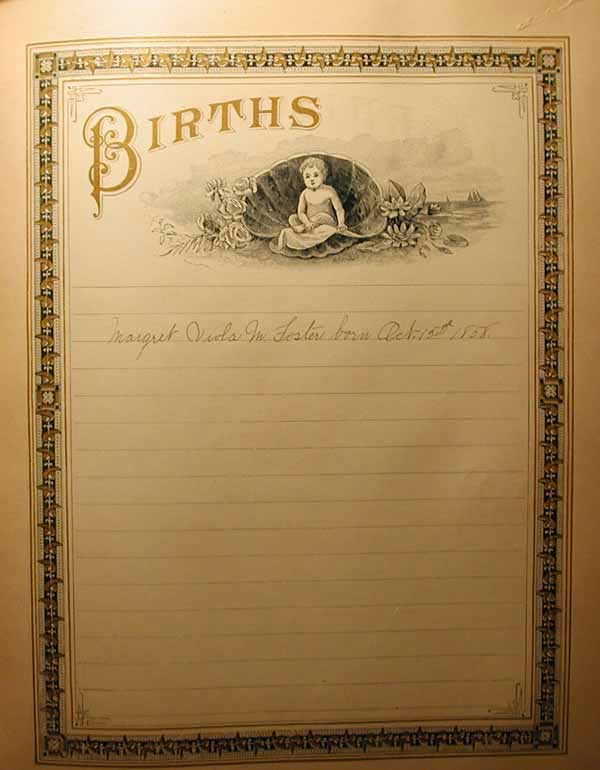 BIRTHS
Margret Viola M. Foster born Oct.